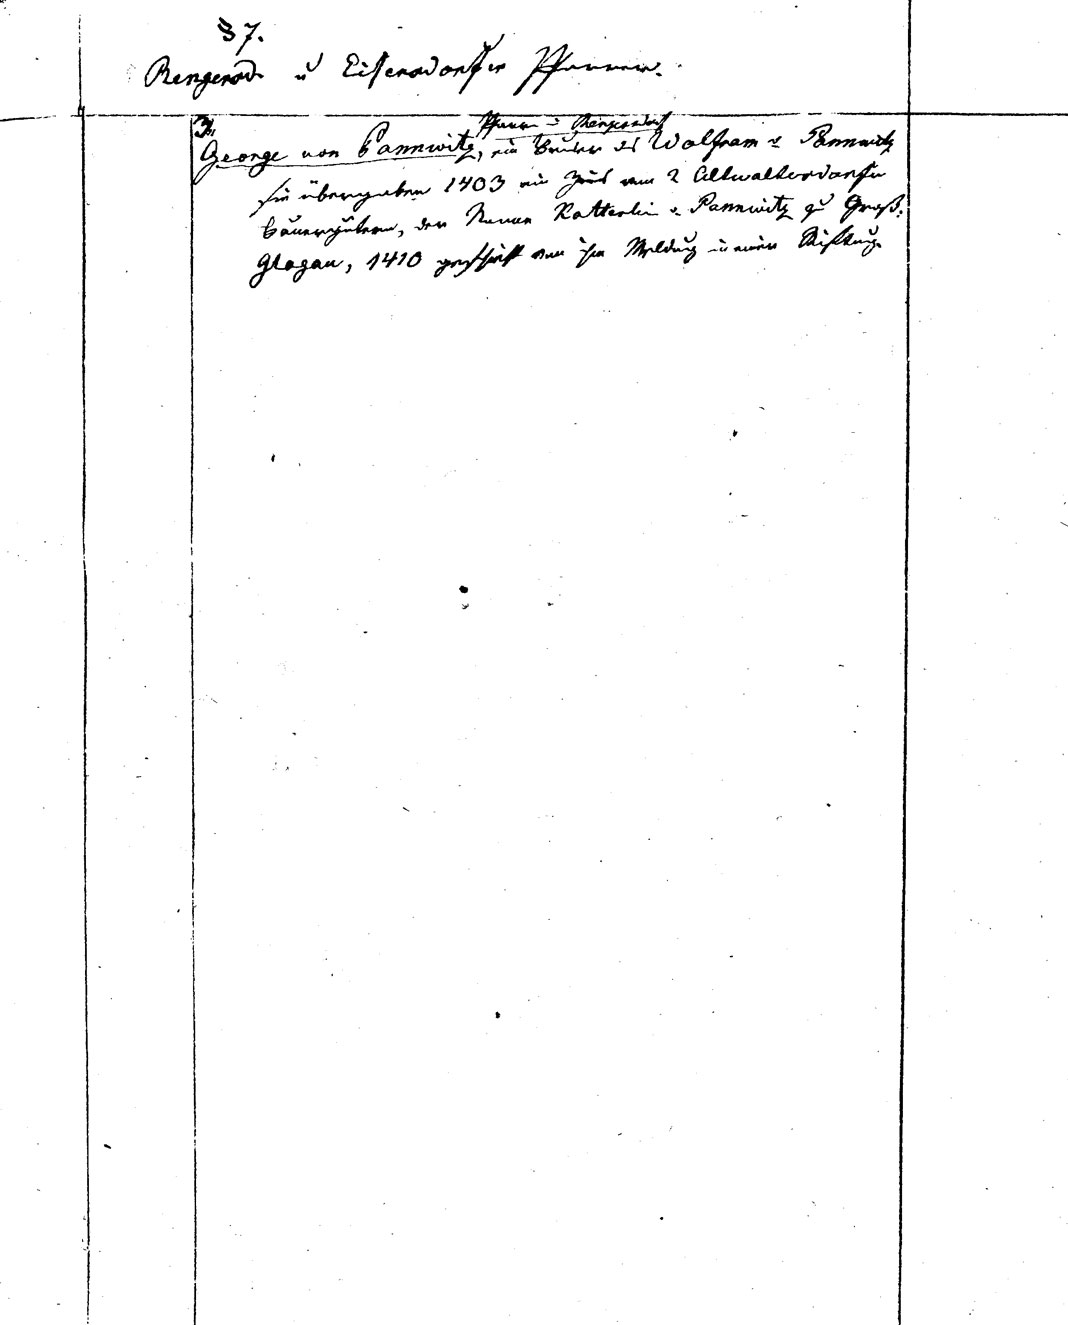 § 7.
Rengersd. u Eisersdorfer Pfarrer.
3.
Pfarr. in Rengersdorf
George von Pannwitz, ein Bruder des Wolfram v Pannwitz
sie übergeben 1403 ein Zins von 2 Altwaltersdorfer
Bauergütern, der Nonne Katterlin v. Pannwitz zu Groß:
Glogau, 1410 geschieht von ihm Meldung in einer Stiftung.